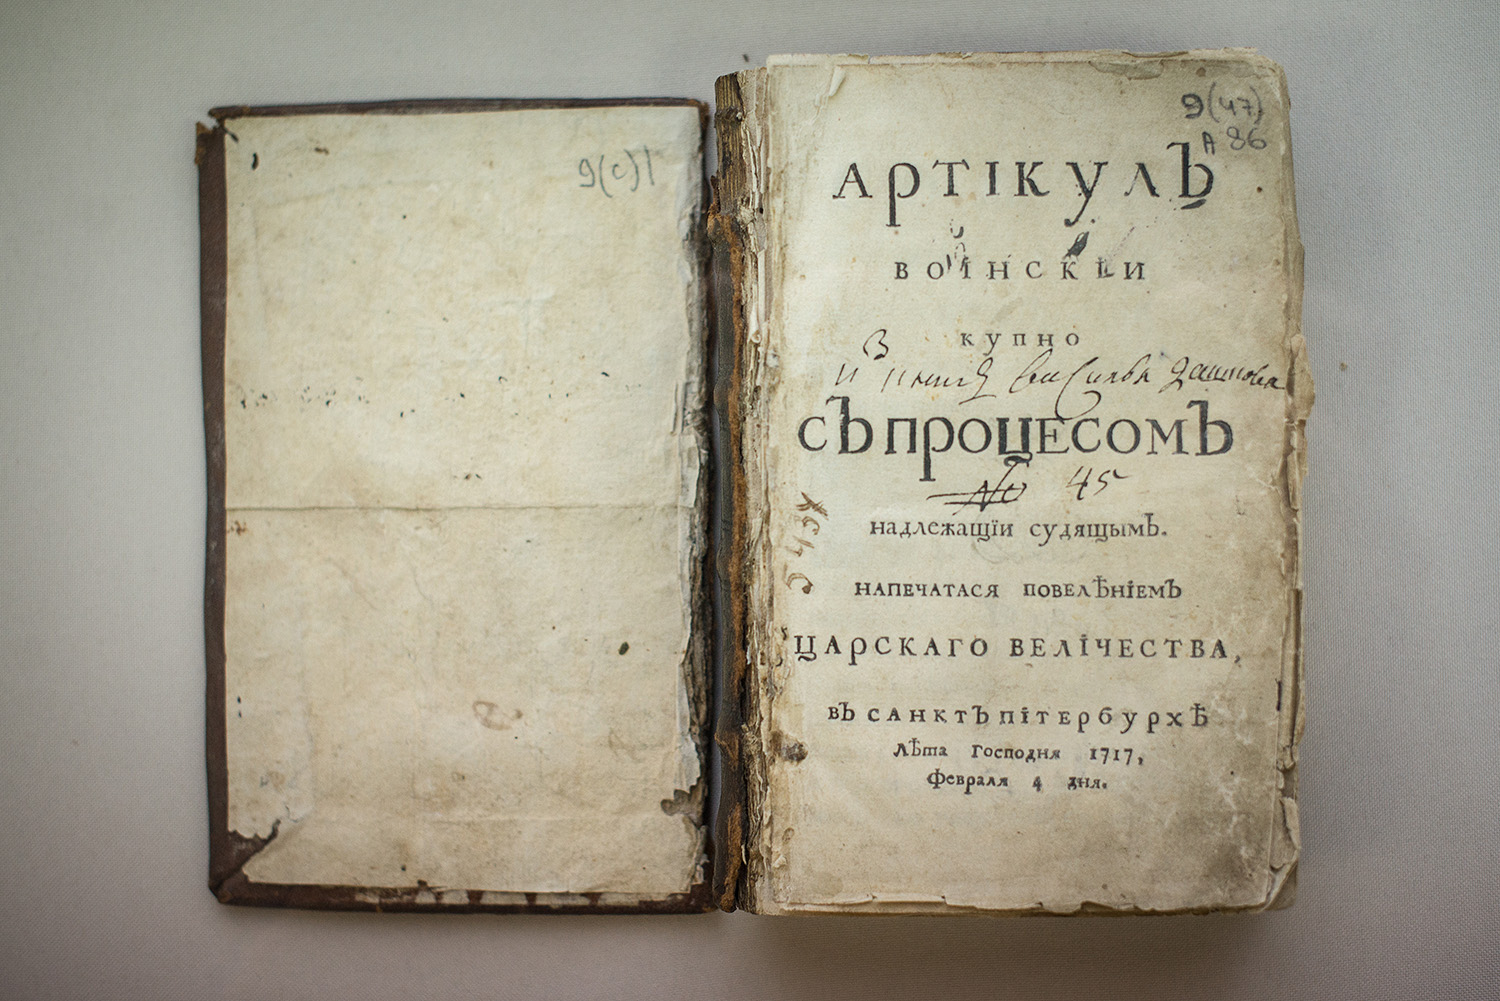 9(с)1
9(47)
А 86
АРТІКУЛЪ
ВОІНСКІИ
КУПНО
изъ книгъ
СЪПРОЦЕСОМЪ
№ 45
надлежащїи судящымъ.
НАПЕЧАТАСЯ ПОВЕЛѢНІЕМЪ
ЦАРСКАГО ВЕЛІЧЕСТВА,
ВЪ САНКТЪПІТЕРБУРХѢ
лѣта господня 1717,
февраля 4 дня.